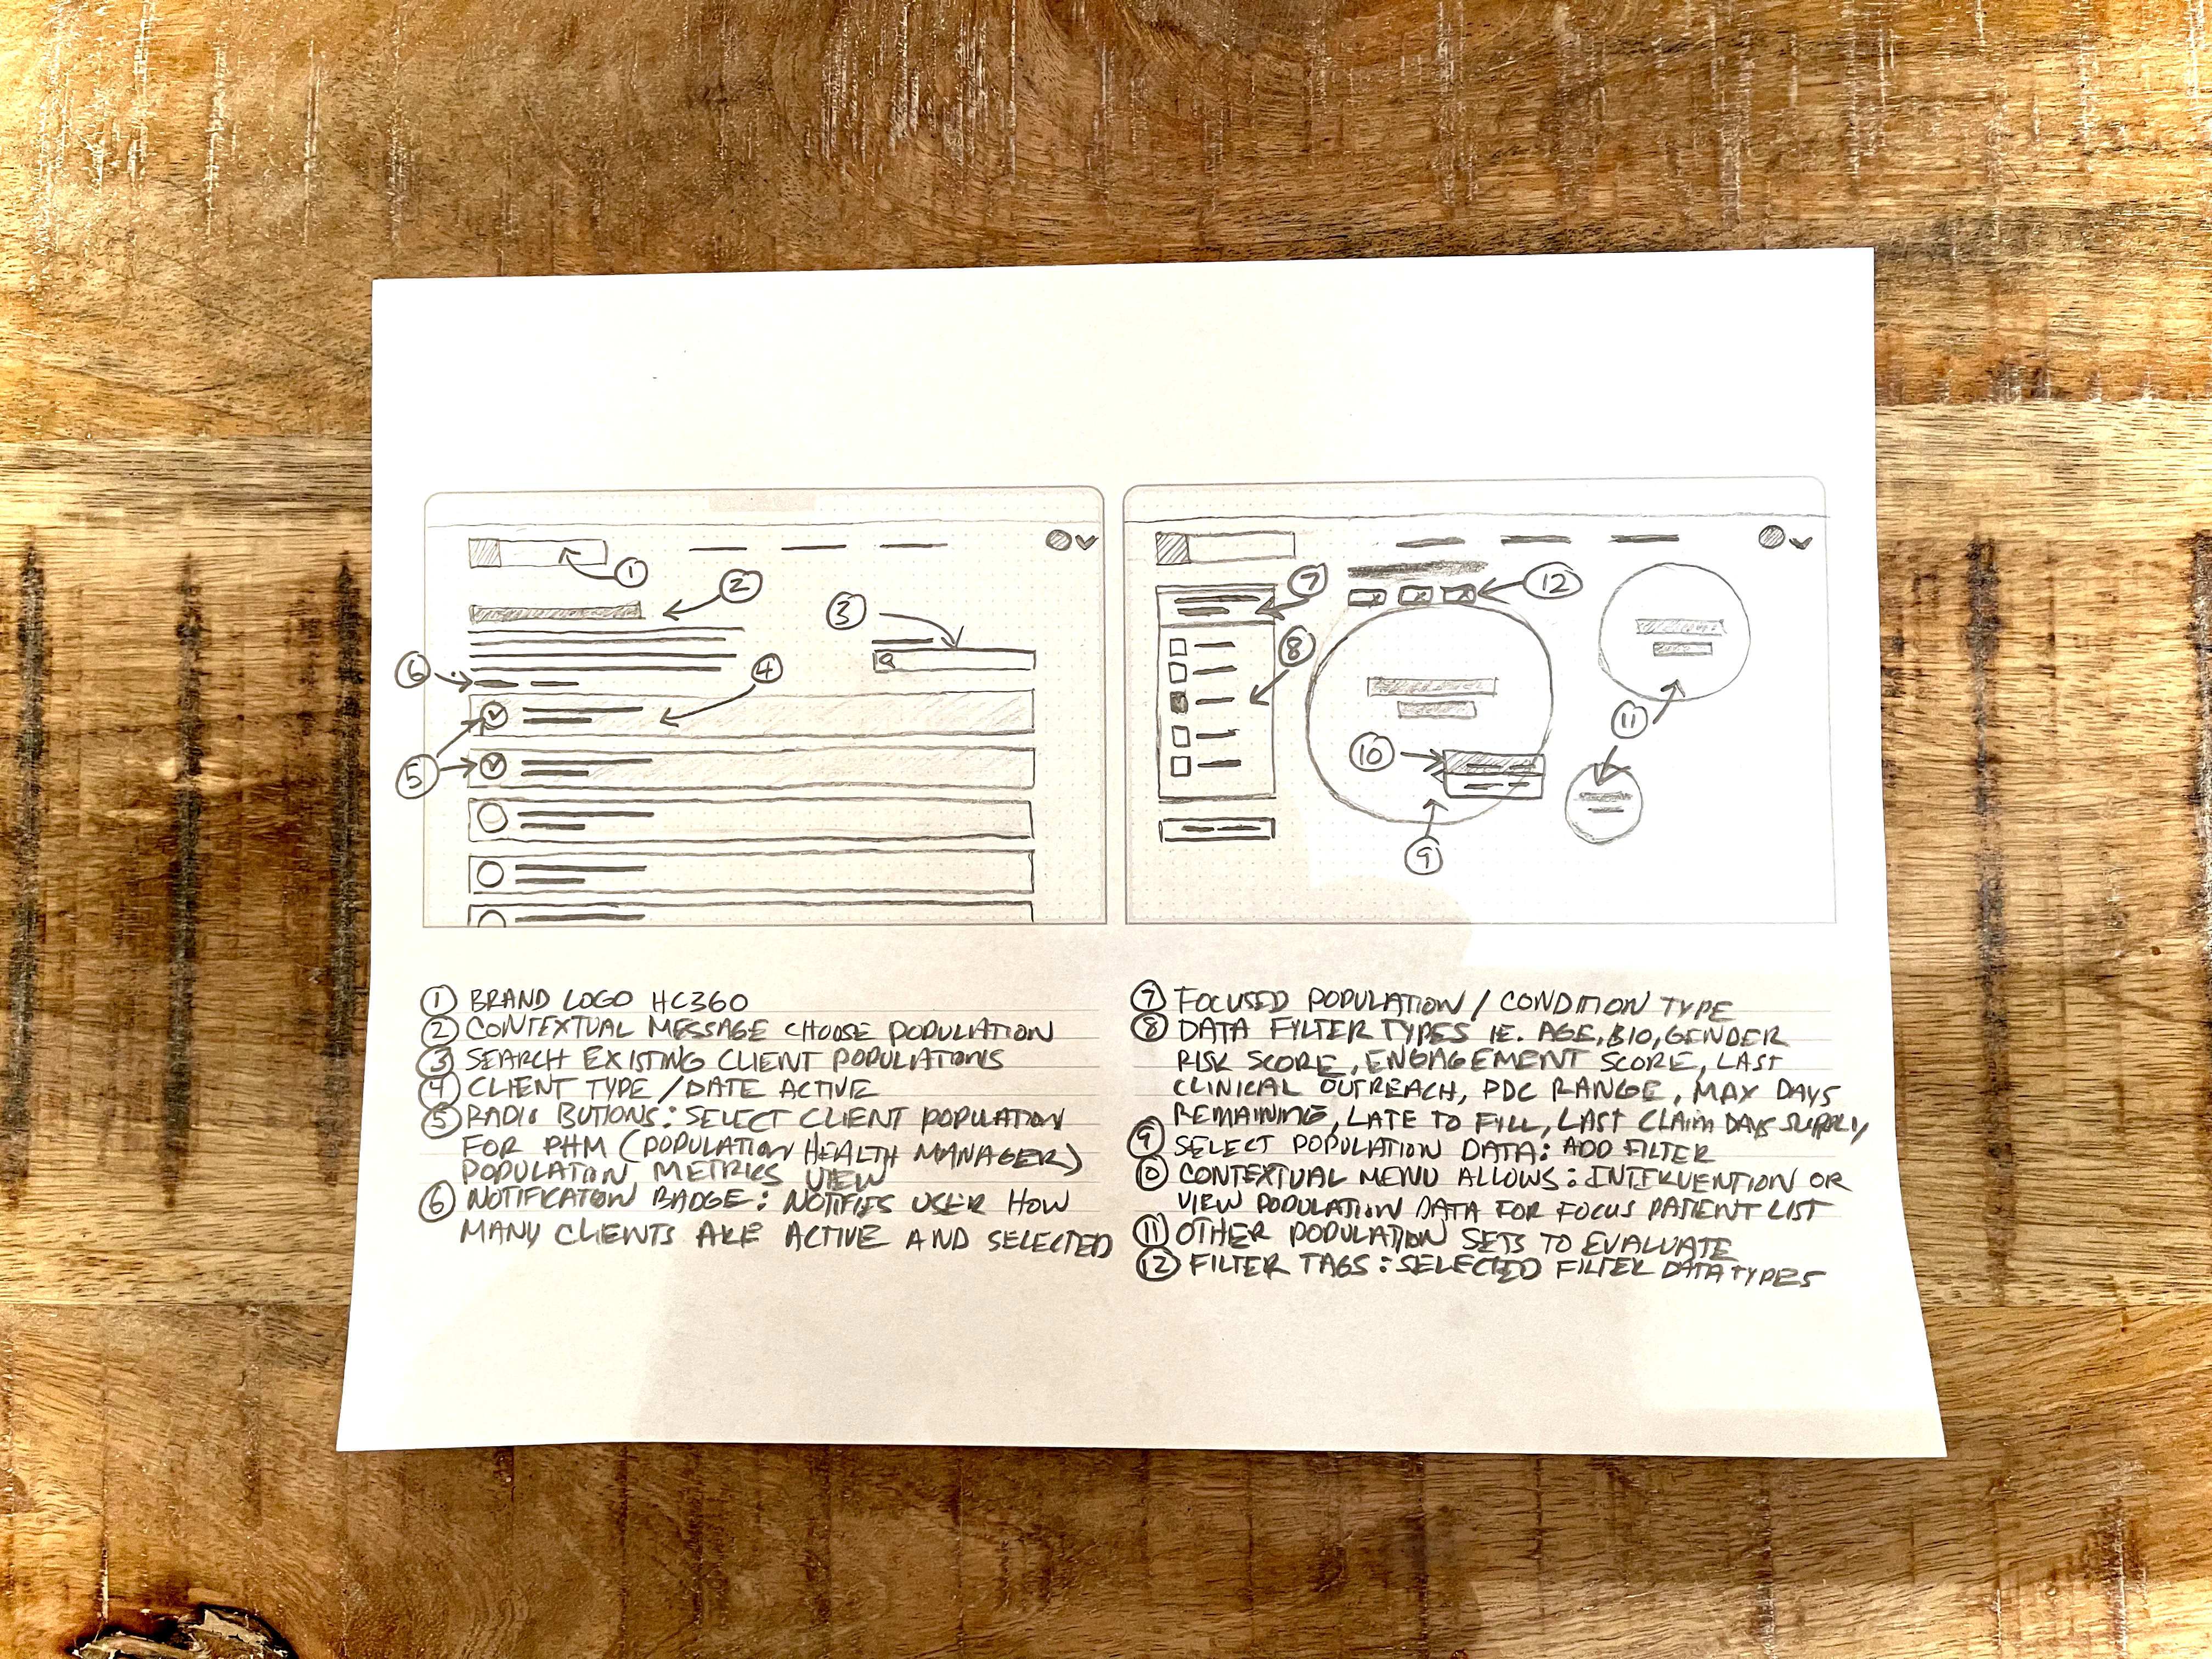 1
2
3
4
5
6
7
8
9
10
11
12
① BRAND LOGO HC360
② CONTEXTUAL MESSAGE CHOOSE POPULATION
③ SEARCH EXISTING CLIENT POPULATIONS
④ CLIENT TYPE / DATE ACTIVE
⑤ RADIO BUTIONS: SELECT CLIENT POPULATION
FOR PHM (POPULATION HEALTH MANAGER)
POPULATION METRICS VIEW
⑥ NOTIFICATION BADGE: NOTIFIES USER HOW
MANY CLIENTS ARE ACTIVE AND SELECTED
⑦ FOCUSED POPULATION / CONDITION TYPE
⑧ DATA FILTER TYPES IE. AGE, BIO, GENDER
RISK SCORE, ENGAGEMENT SCORE, LAST
CLINICAL OUTREACH, PDC RANGE, MAX DAYS
REMAINING, LATE TO FILL, LAST CLAIM DAYS SUPPLY
⑨ SELECT POPULATION DATA: ADD FILTER
⑩ CONTEXTUAL MENU ALLOWS: INTERVENTION OR
VIEW POPULATION DATA FOR FOCUS PATIENT LIST
⑪ OTHER POPULATION SETS TO EVALUATE
⑫ FILTER TAGS: SELECTED FILTER DATA TYPES